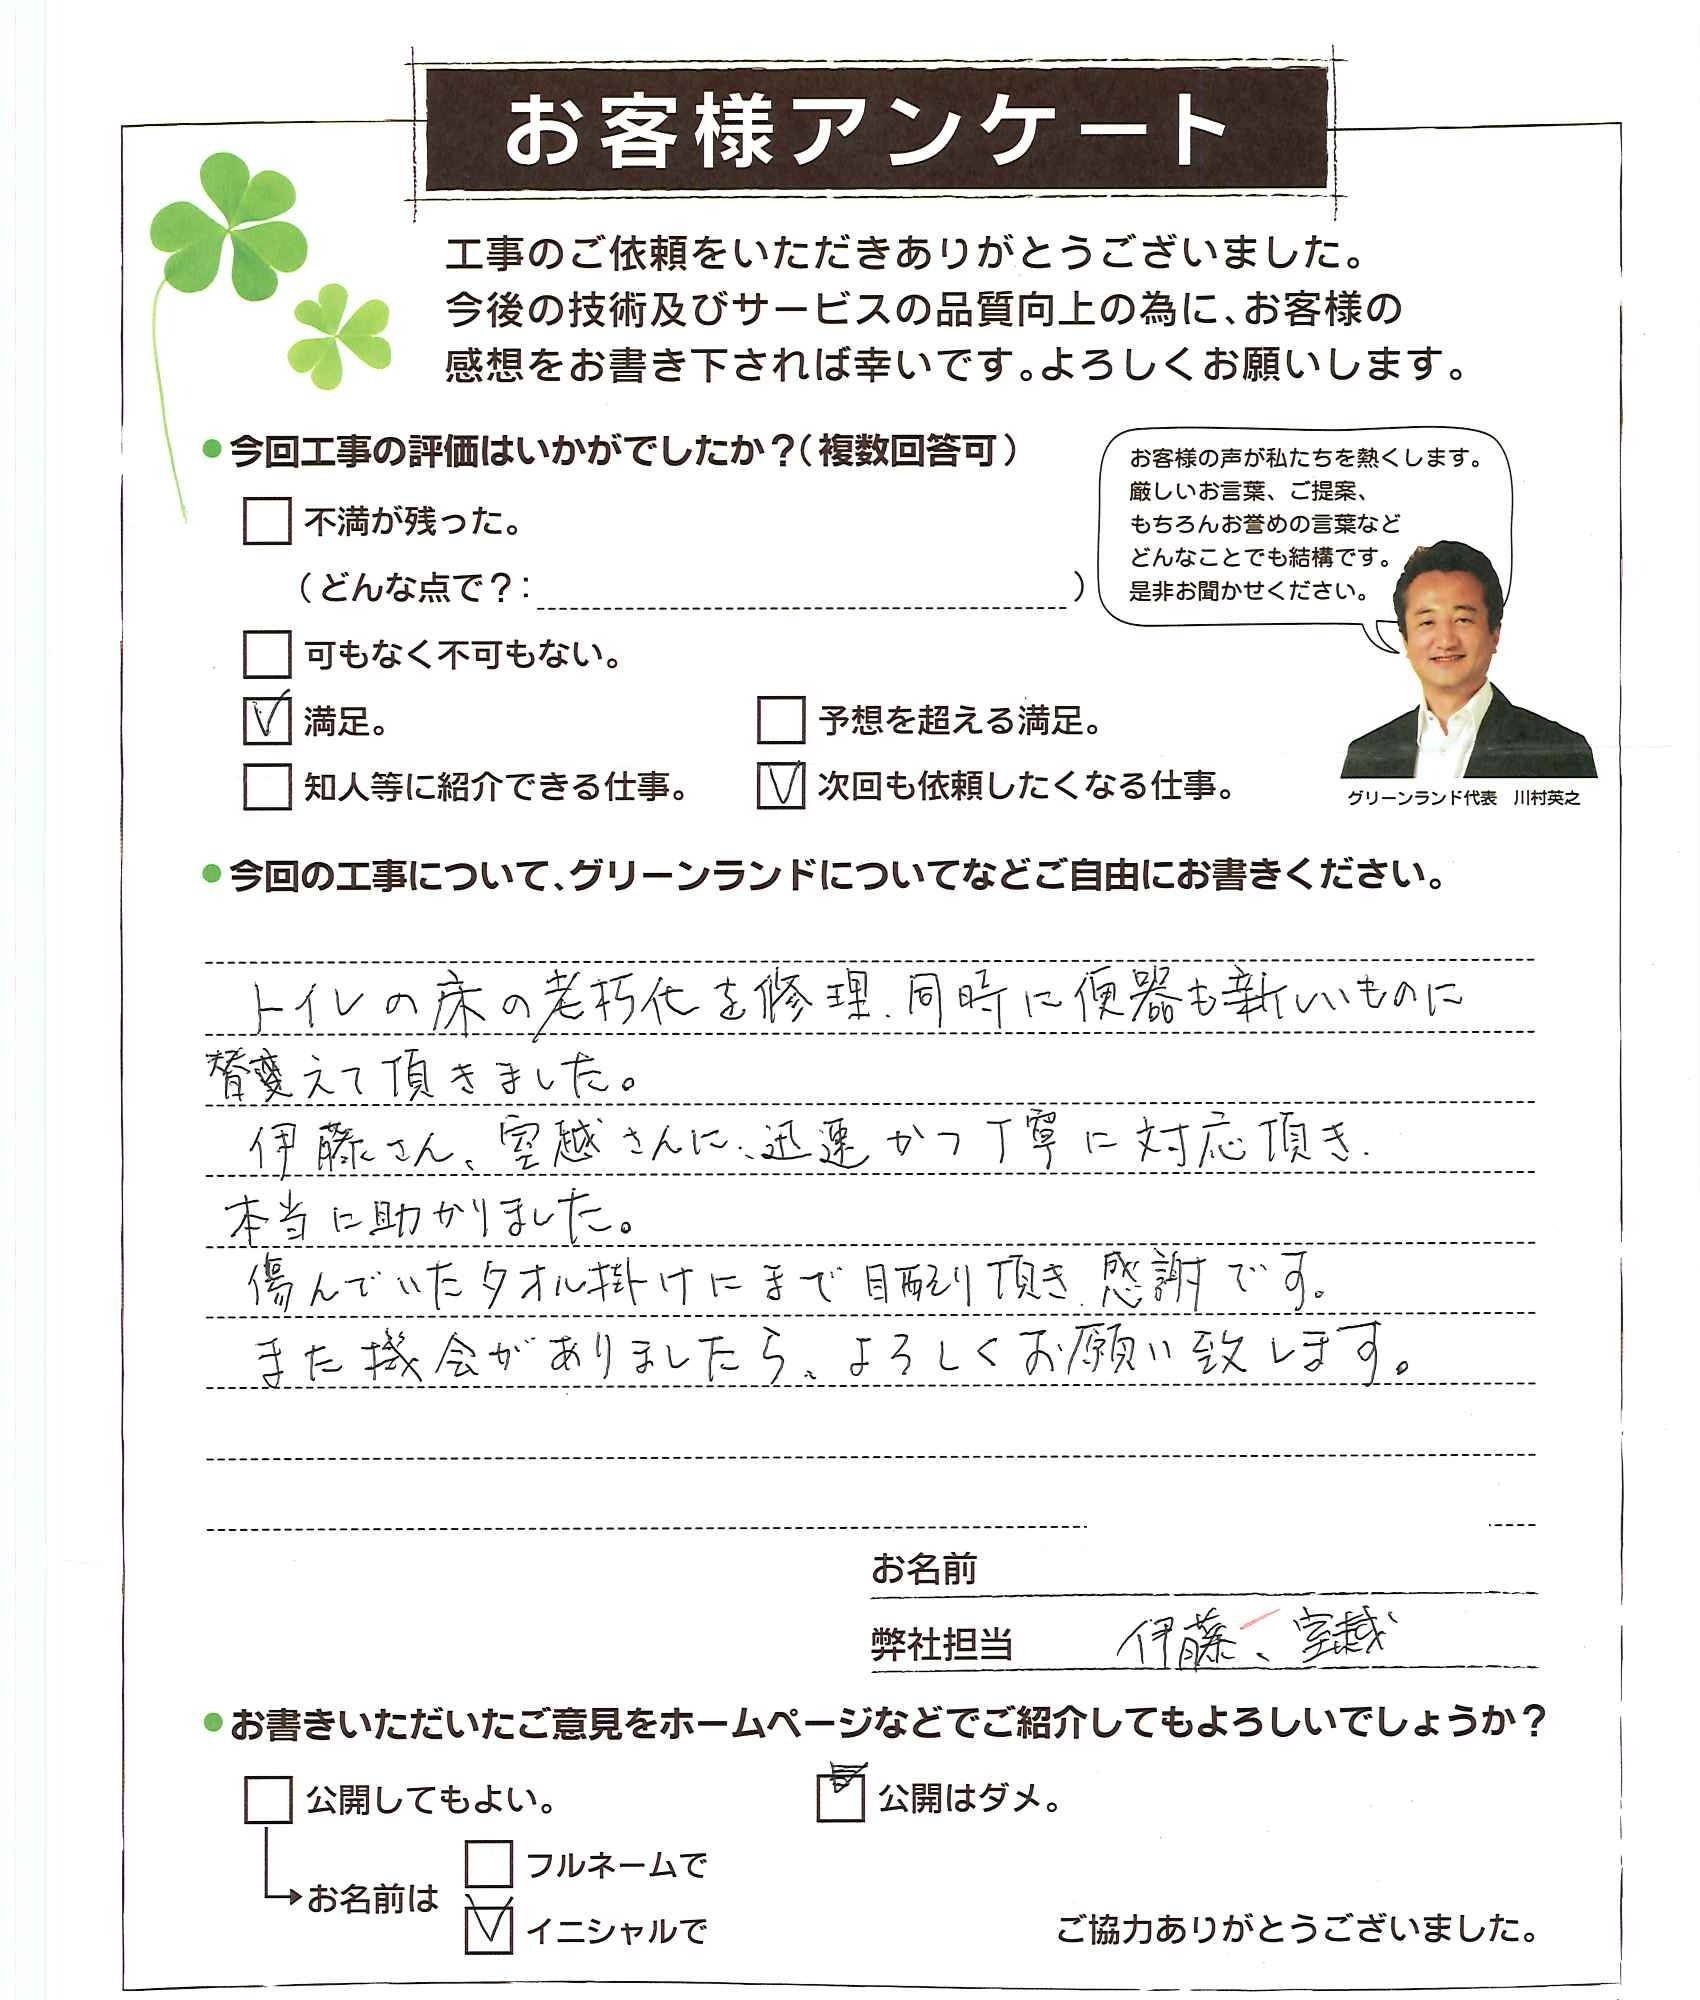 お客様アンケート
工事のご依頼をいただきありがとうございました。
今後の技術及びサービスの品質向上の為に、お客様の
感想をお書き下されば幸いです。よろしくお願いします。
●今回工事の評価はいかがでしたか？（複数回答可）
不満が残った。
（どんな点で？：　）
可もなく不可もない。
満足。
予想を超える満足。
知人等に紹介できる仕事。
次回も依頼したくなる仕事。
お客様の声が私たちを熱くします。
厳しいお言葉、ご提案、
もちろんお誉めの言葉など
どんなことでも結構です。
是非お聞かせください。
グリーンランド代表　川村英之
●今回の工事について、グリーンランドについてなどご自由にお書きください。
トイレの床の老朽化を修理、同時に便器も新しいものに
替変えて頂きました。
伊藤さん、室越さんに、迅速かつ丁寧に対応頂き、
本当に助かりました。
傷んでいたタオル掛けにまで目配り頂き、感謝です。
また機会がありましたら、よろしくお願い致します。
お名前
弊社担当　伊藤、室越
●お書きいただいたご意見をホームページなどでご紹介してもよろしいでしょうか？
公開してもよい。
公開はダメ。
お名前は
フルネームで
イニシャルで
ご協力ありがとうございました。